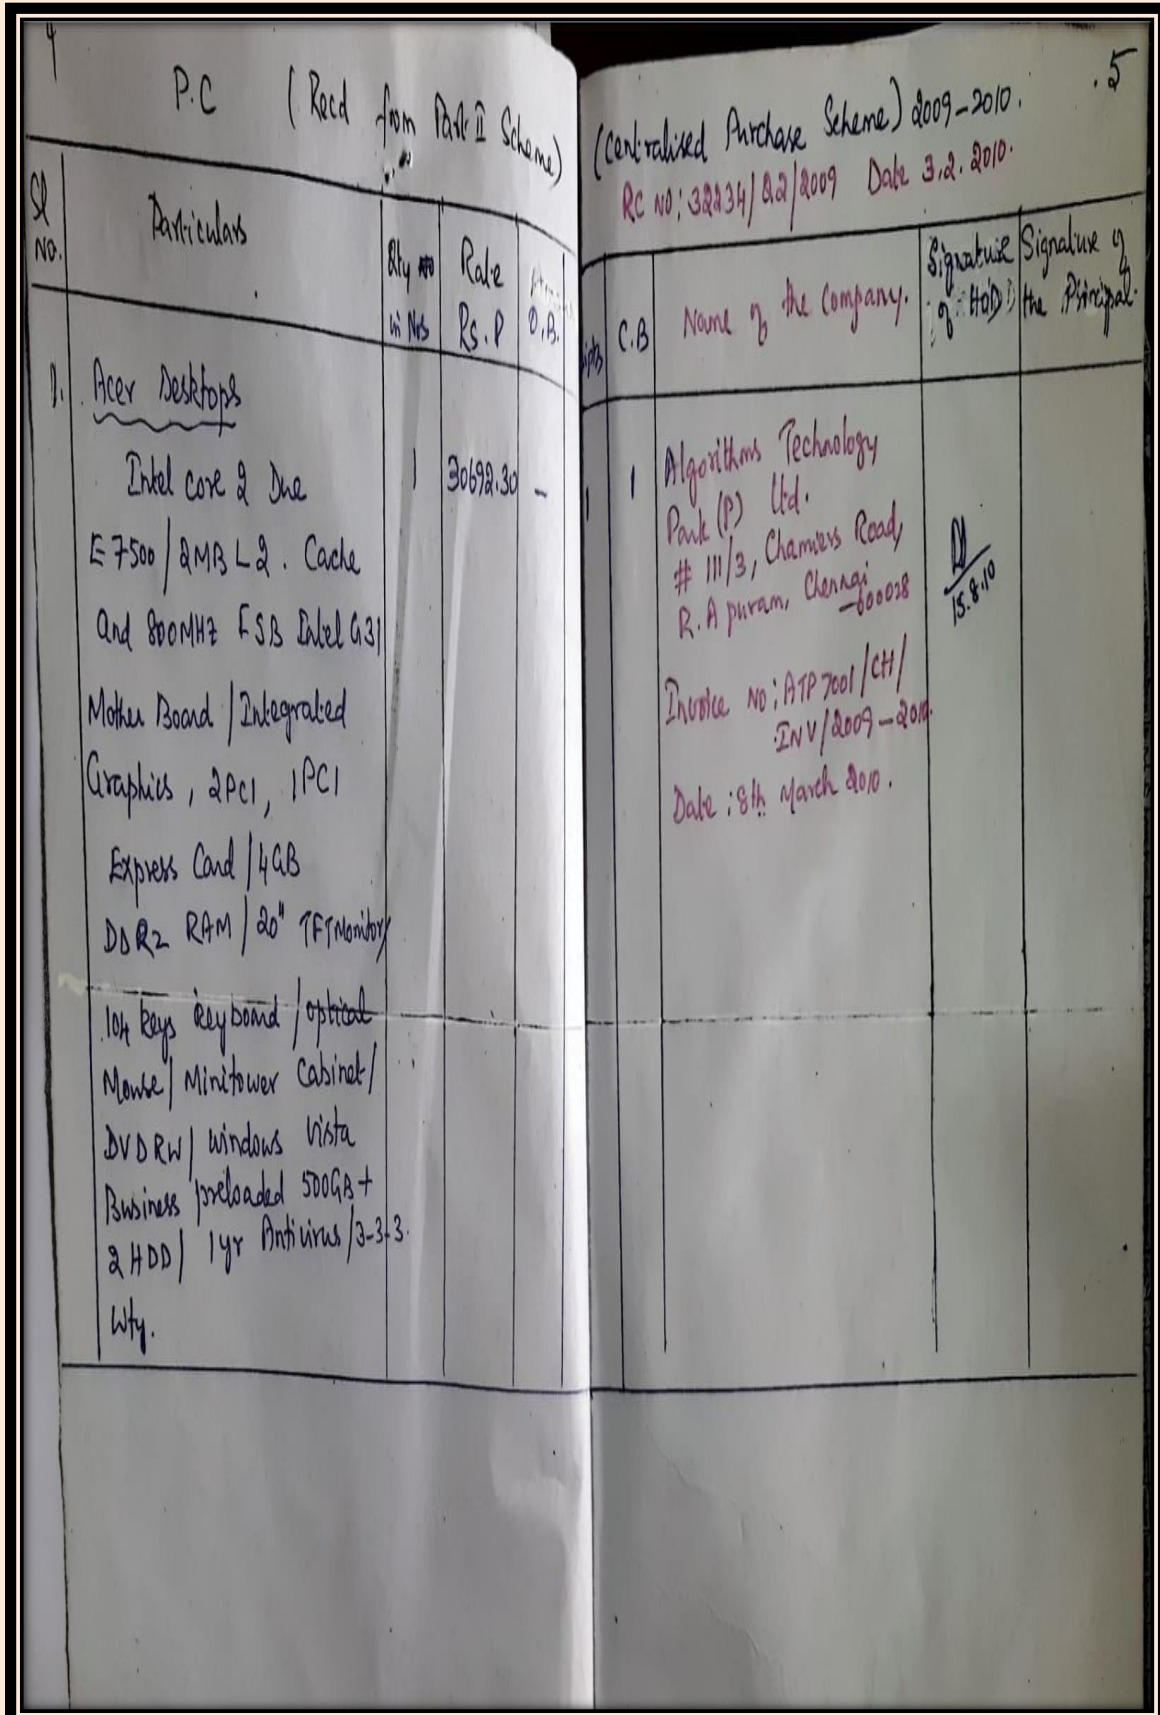 4
P.C (Recd from Part II Scheme)
Sl No.
Particulars
Qty in Nos
Rate Rs. P
O.B.
1.
Acer Desktops
Intel core 2 Due
E7500/2MB L2. Cache
And 800MHz FSB Intel G31
Mother Board/Integrated
Graphics, 2PCI, 1PCI
Express Card/4GB
DDR2 RAM/20" TFT Monitor/
104 keys keyboard/optical
Mouse/Minitower Cabinet/
DVDRW/windows Vista
Business preloaded 500GB+
2HDD/ 1yr Antivirus/3-3-3.
Wty.
1
30692.30
-
.5
(Centralised Purchase Scheme) 2009-2010.
RC NO: 32234/22/2009 Date 3.2.2010.
C.B
Name of the Company.
Signature of HOD
Signature of the Principal.
1
1
Algorithms Technology
Park (P) Ltd.
# 111/3, Chamiers Road,
R.A puram, Chennai
-600028
Invoice NO: ATP7001/CH/
INV/2009-2010.
Date: 8th March 2010.
15.8.10